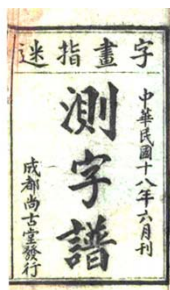 字畫指迷
中華民國十八年六月刊
測字譜
成都尚古堂發行